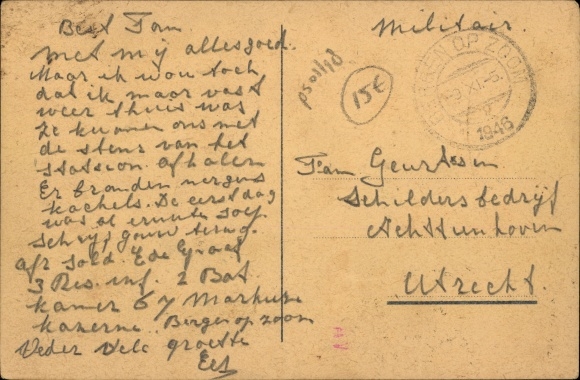 Best Fam
met mij alles goed.
Maar ik wou toch
dat ik maar vast
weer thuis was
ze kwamen ons met
de stens van het
stassion afhalen
Er branden nergens
kachels. De eerste dag
was al ernute soep
schrijf gouw terug.
afz sold. E de Graaf
3 Res. inf. 2 Bat
kamer 67 Markieze
kazerne. Bergen op zoom
Veder vele groette
Ed
Militair.
BERGEN OP ZOOM
-9.XI.-6.
1946
15€
Fam Geurtssen
Schildersbedrijf
Achttienhoven
Utrecht.